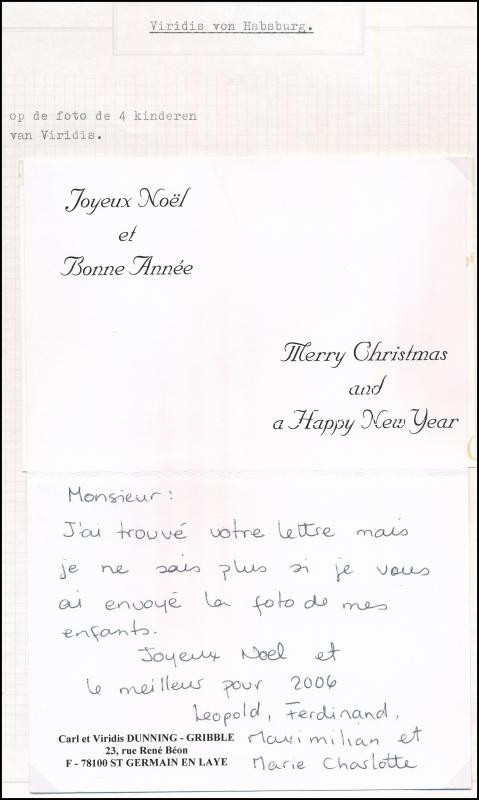 Viridis von Habsburg.
op de foto de 4 kinderen
van Viridis.
Joyeux Noël
et
Bonne Année
Merry Christmas
and
a Happy New Year
Monsieur:
J'ai trouvé votre lettre mais
je ne sais plus si je vous
ai envoyé la foto de mes
enfants.
Joyeux Noel et
le meilleur pour 2006
Leopold, Ferdinand,
Maximilian et
Marie Charlotte
Carl et Viridis DUNNING - GRIBBLE
23, rue René Béon
F - 78100 ST GERMAIN EN LAYE